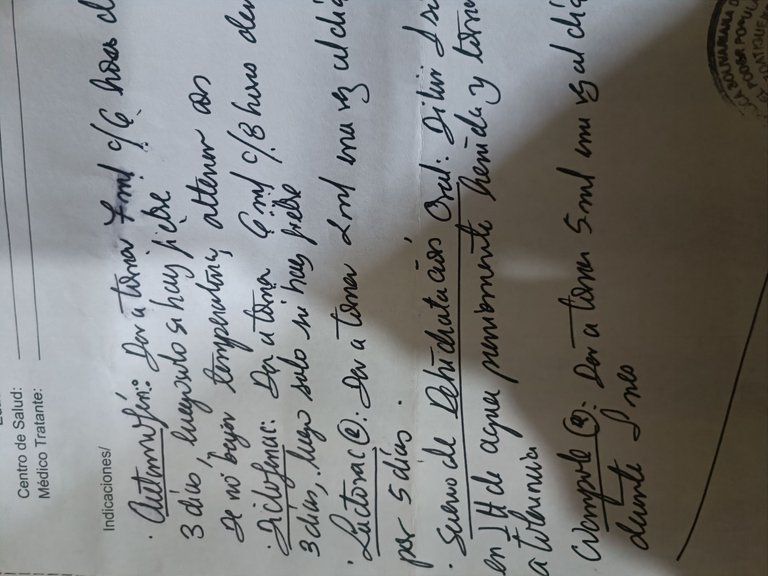 Centro de Salud:
Médico Tratante:
Indicaciones/
· Acetaminofén: Dar a tomar 7 ml c/6 horas
3 días, luego solo si hay fiebre
De no bajar temperatura, alternar con
· Diclofenac: Dar a tomar 6 ml c/8 horas
3 días, luego solo si hay fiebre
· Lactorac®: Dar a tomar 2 ml una vez al día
por 5 días.
· Suero de Rehidratación Oral: Diluir 1
en 1 lt de agua previamente hervida y tomar
a tolerancia
5 ml una vez al día
durante 1 mes